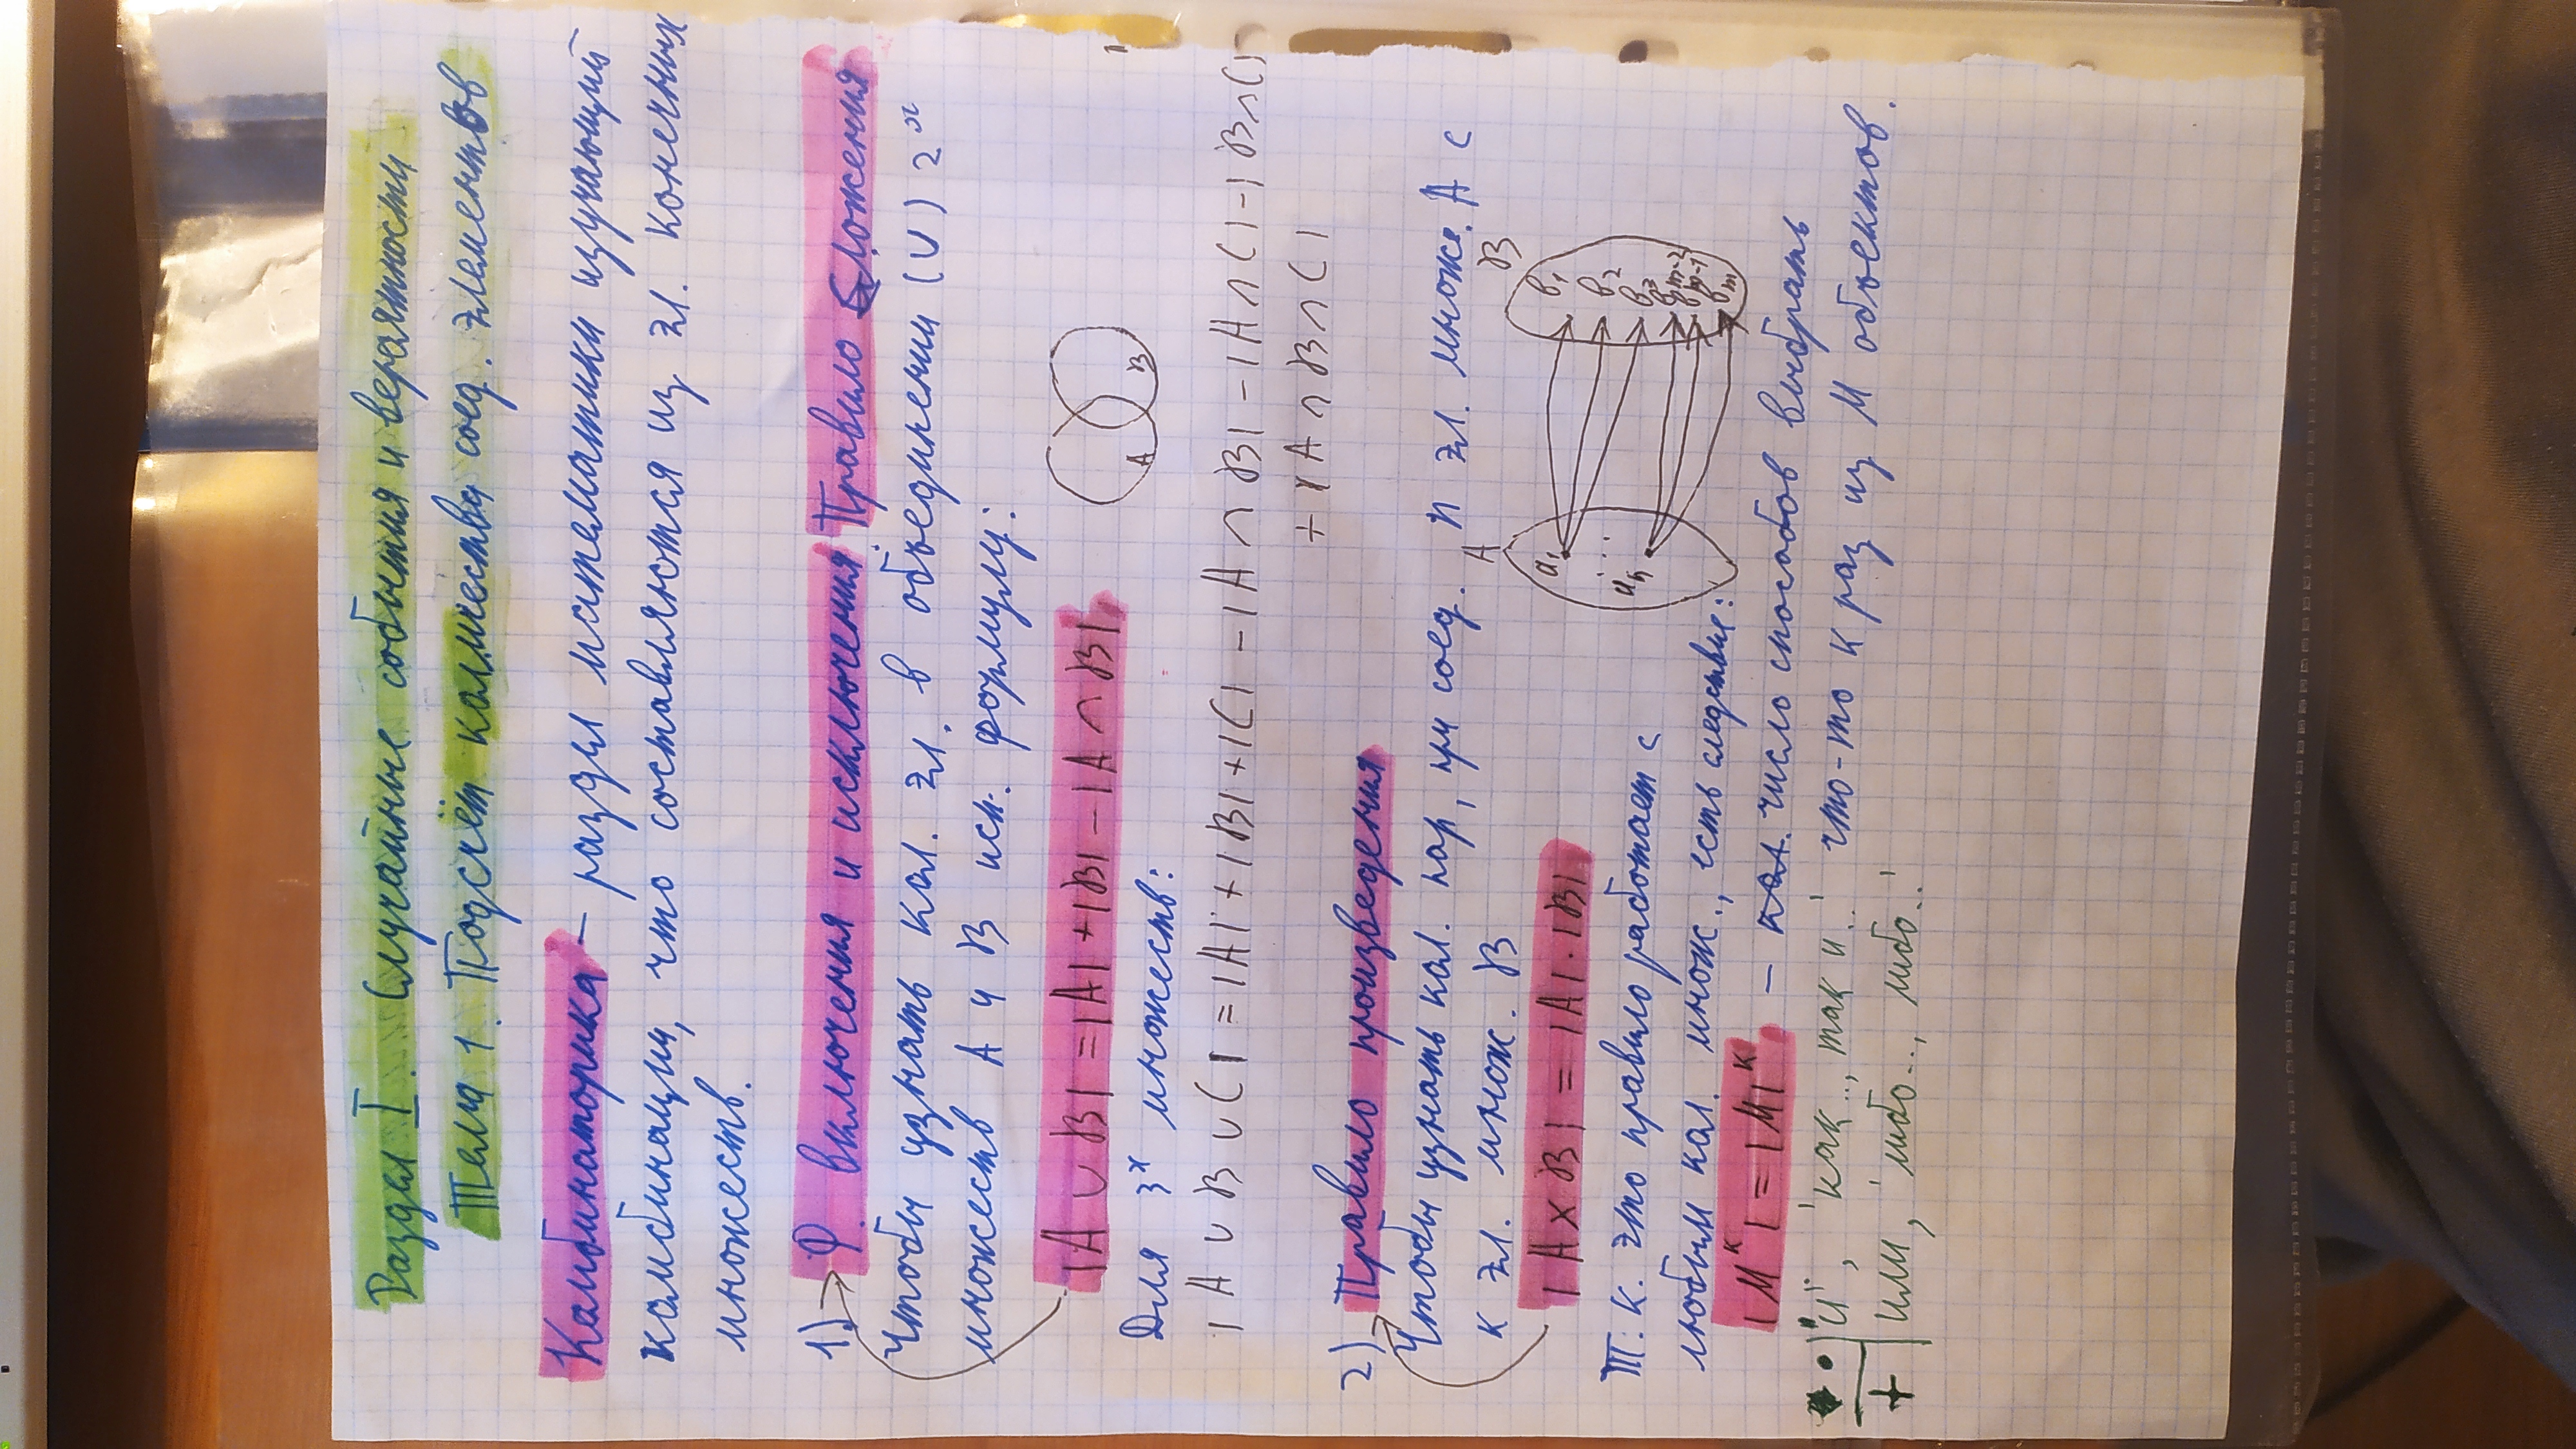 Раздел I. Случайные события и вероятности
Тема 1. Подсчёт количества соед. элементов
Комбинаторика – раздел математики изучающий
комбинации, что составляются из эл. конечных
множеств.
1) Ф. включения и исключения. Правило сложения
Чтобы узнать кол. эл. в объединении (∪) 2ˣ
множеств A и B исп. формулу:
|A ∪ B| = |A| + |B| – |A ∩ B|
A B
Для 3ˣ множеств:
|A ∪ B ∪ C| = |A| + |B| + |C| – |A ∩ B| – |A ∩ C| – |B ∩ C|
+ |A ∩ B ∩ C|
2) Правило произведения
Чтобы узнать кол. пар, при соед. n эл. множ. A с
к эл. множ. B
A B
|A × B| = |A| · |B|
a₁ ... aₙ
b₁ b₂ b₃ bₘ₋₂ bₘ₋₁ bₘ
Т. к. это правило работает с
любым кол. множ., есть следствие:
|Mᵏ| = |M|ᵏ – кол. число способов выбрать
что-то к раз из M объектов.
· "и", 'как.., так и..'
+ или, 'либо.., либо..'